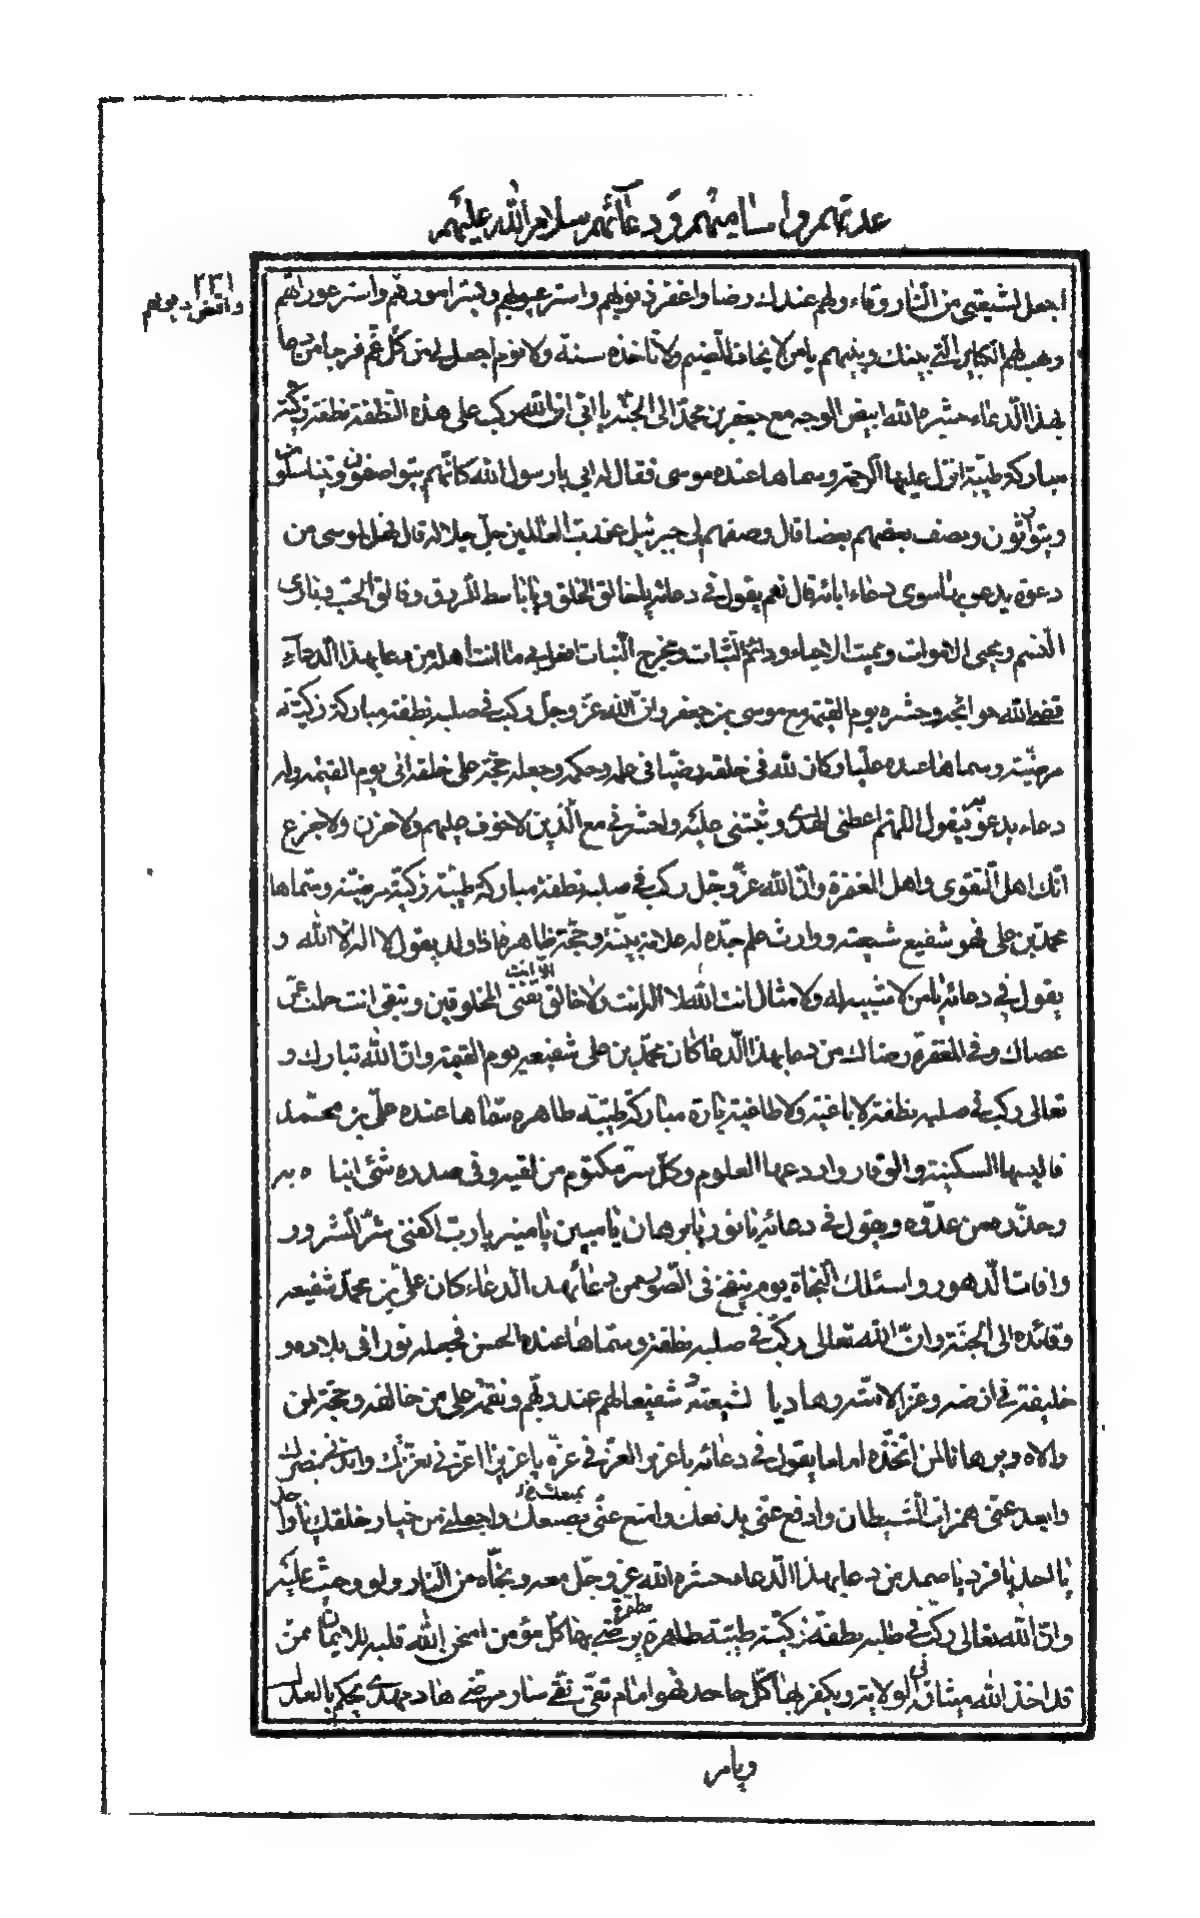 عدتهم واساميهم ودعائهم سلام الله عليهم
٢٣١
واقض ديونهم
اجعل لشيعتي من النار وقاء ولهم عندك رضا واغفر ذنوبهم واستر عيوبهم ويسر امورهم واستر عوراتهم
وهب لهم الكبائر التي بينك وبينهم يا من لا يخاف الضيم ولا تاخذه سنة ولا نوم اجعل لي من كل غم فرجا من دعا
بهذا الدعاء حشره الله ابيض الوجه مع جعفر بن محمد الى الجنة يا ابي ان الله ركب على هذه النطفة نطفة زكية
مباركة طيبة انزل عليها الرحمة وسماها عنده موسى فقال له ابي يا رسول الله كانهم يتواصفون ويتناسلون
ويتوارثون ويصف بعضهم بعضا قال وصفهم لي جبرئيل عن رب العالمين جل جلاله قال فهل لموسى من
دعوة يدعو بها سوى دعاء ابائه قال نعم يقول في دعائه يا خالق الخلق ويا باسط الرزق وفالق الحب وبارئ
النسم ومحيي الموات ومميت الاحياء ودائم الثبات ومخرج النبات افعل بي ما انت اهله من دعا بهذا الدعاء
قضى الله حوائجه وحشره يوم القيمة مع موسى بن جعفر وان الله عز وجل ركب في صلبه نطفة مباركة زكية
مرضية وسماها عنده عليا وكان لله في خلقه رضيا في علمه وحكمه وجعله حجة على خلقه الى يوم القيمة وله
دعاء يدعو به يقول اللهم اعطني الهدى وثبتني عليه واحشرني مع الذين لا خوف عليهم ولا حزن ولا جزع
انك اهل التقوى واهل المغفرة وان الله عز وجل ركب في صلبه نطفة مباركة طيبة زكية مرضية وسماها
محمد بن علي فهو شفيع شيعته ووارث علم جده له علامة بينة وحجة ظاهرة اذا ولد يقول لا اله الا الله و
يقول في دعائه يا من لا شبيه له ولا مثال انت الله لا اله الا انت ولا خالق تفني المخلوقين وتبقى انت حلمت عمن
عصاك وفي المغفرة رضاك من دعا بهذا الدعا كان محمد بن علي شفيعه يوم القيمة وان الله تبارك و
تعالى ركب في صلبه نطفة لا باغية ولا طاغية بارة مباركة طيبة طاهرة سماها عنده علي بن محمد
فالبسها السكينة والوقار واودعها العلوم وكل سر مكتوم من لقيه وفي صدره شئ انباه به
وحذره من عدوه ويقول في دعائه يا نور يا برهان يا مبين يا منير يا رب اكفني شر الشرور
وافات الدهور واسئلك النجاة يوم ينفخ في الصور من دعا بهذا الدعاء كان علي بن محمد شفيعه
وقائده الى الجنة وان الله تعالى ركب في صلبه نطفة وسماها عنده الحسن فجعله نورا في بلاده و
خليفة في ارضه وعزا لامته وهاديا لشيعته شفيعا لهم عند ربهم ونقمة على من خالفه وحجة لمن
والاه وبرهانا لمن اتخذه اماما يقول في دعائه يا عزيز العز في عزه يا عزيزا اعزني بعزك وايدني بنصرك
وابعد عني همزات الشيطان وادفع عني بدفعك وامنع عني بصنعك بمنعك واجعلني من خيار خلقك يا واحد
يا احد يا فرد يا صمد من دعا بهذا الدعاء حشره الله عز وجل معه ونجاه من النار ولو وجبت عليه
وان الله تعالى ركب في صلبه نطفة زكية طيبة طاهرة مطهرة يرضى بها كل مؤمن امتحن الله قلبه للايمان ممن
قد اخذ الله ميثاقه في الولاية ويكفر بها كل جاحد فهو امام تقي نقي سار مرضي هاد مهدي يحكم بالعدل
ويامر